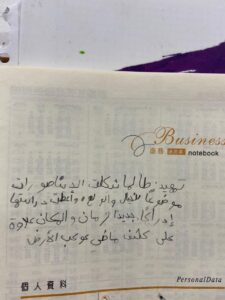 Business
商務 notebook
تمهيد: طالما شكلت الديناصورات
موضوعاً للخيال والولع وأعطت دراستها
إدراكاً جديداً لزمان والمكان علاوة
على كشف ماضي كوكب الأرض
個人資料 PersonalData